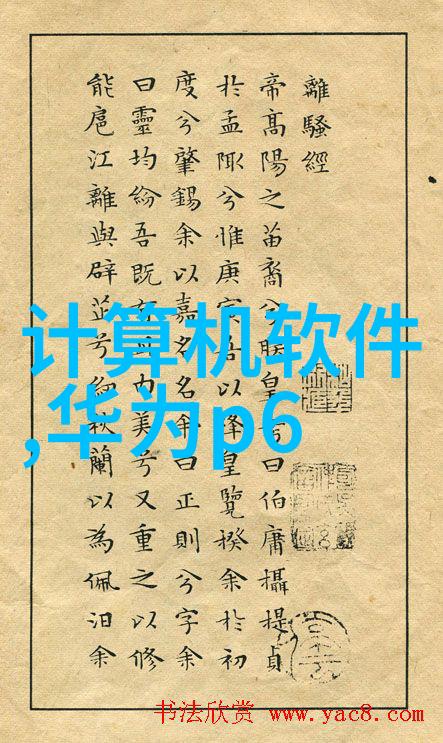 離騷經
帝高陽之苗裔兮朕皇考曰伯庸攝提貞
於孟陬兮惟庚寅吾以降皇覽揆余於初
度兮肇錫余以嘉名名余曰正則兮字余
曰靈均紛吾既有此內美兮又重之以修
能扈江離與辟芷兮紉秋蘭以為佩汨余
计算机软件
,华为p6
书法欣赏 www.yac8.com